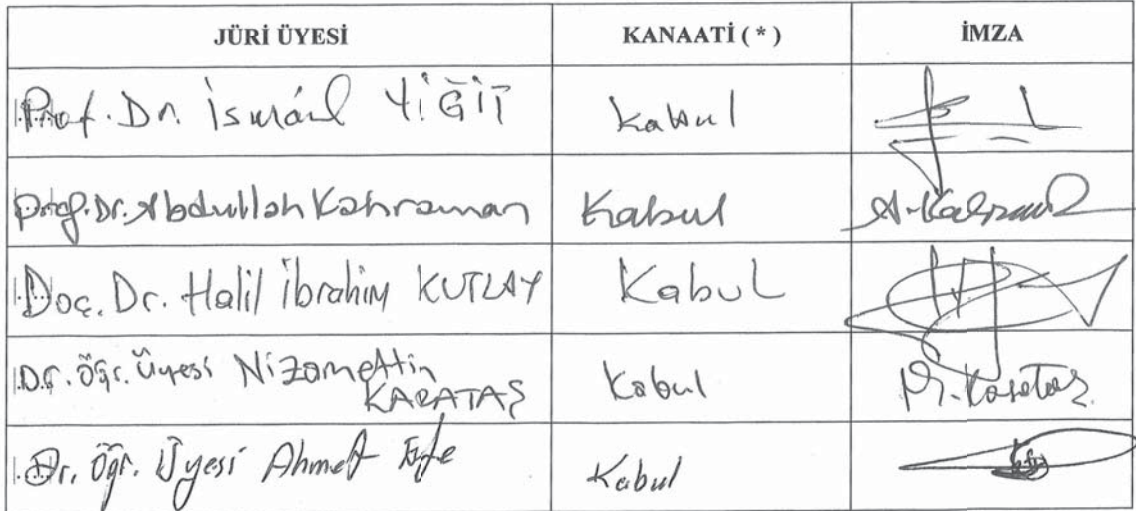 JÜRİ ÜYESİ KANAATİ ( * ) İMZA
Prof. Dr. İsmáil YİĞİT Kabul
Prof. Dr. Abdullah Kahraman Kabul A. Kahraman
Doç. Dr. Halil İbrahim KUTLAY Kabul
Dr. öğr. üyesi Nizamettin
KARATAŞ Kabul N. Karataş
Dr. Öğr. Üyesi Ahmet Efe Kabul